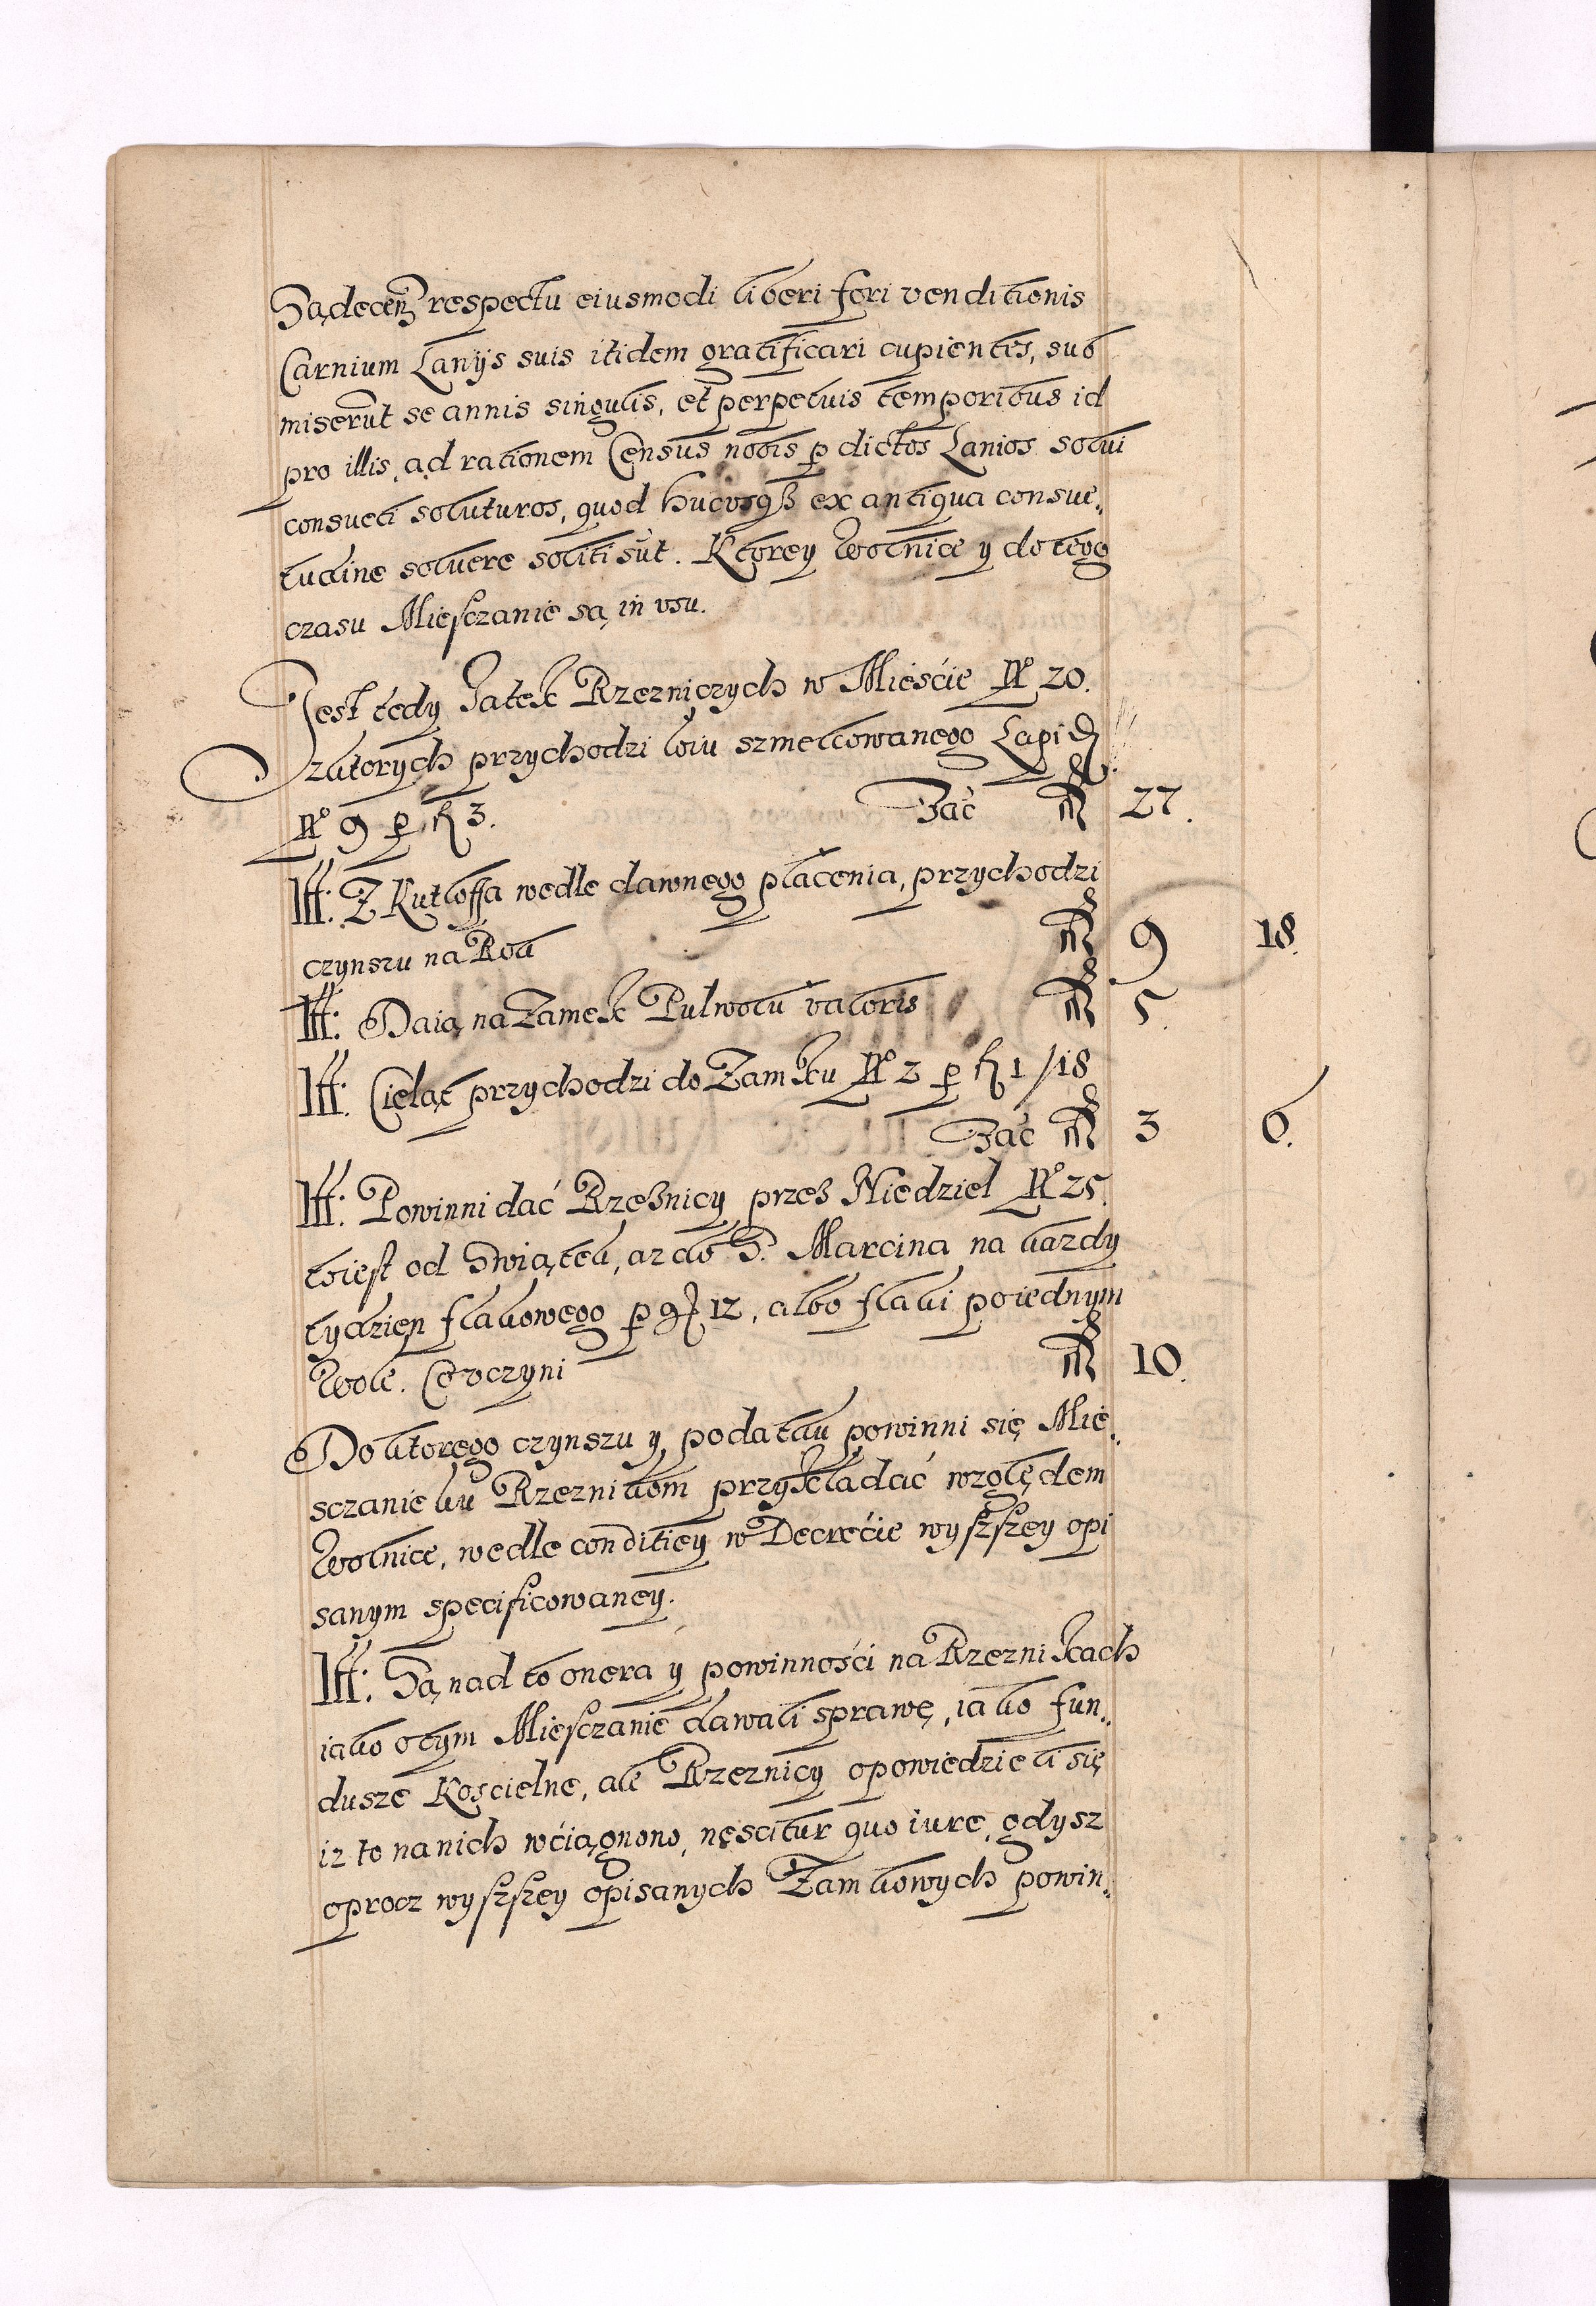 Sądecen: respectu eiusmodi liberi fori venditionis
Carnium Lanijs suis itidem gratificari cupientes, sub
miserūt se annis singulis, et perpetuis temporibus id
pro illis, ad rationem Census nobis p dictos Lanios solui
consueti soluturos, quod hucusq3 ex antiqua consue„
tudine soluere soliti sūt. Ktorey Wolnice y do tego
czasu Miesczanie są in vsu.
Jest tedy Jatek Rzezniczych w Mieście No 20.
z ktorych przychodzi łoiu szmelcowanego Lapid
No 9 p fl 3. Fac fl 27.
Itt: Z Kutloffa wedle dawnego płacenia, przychodzi
czynszu na Rok fl 9 18.
Itt: Daią na Zamek Pulwołu valoris fl 5.
Itt: Cieląt przychodzi do Zamku No 2 p fl 1/18
Fac fl 3 6.
Itt: Powinni dać Rzeźnicy przez Niedziel No 25.
to iest od Swiątek, az do S. Marcina na kazdy
tydzien flakowego p gr 12, albo flaki po iednym
Wole. Co vczyni fl 10.
Do ktorego czynszu y podatku powinni się Mie„
sczanie ku Rzeznikom przykładać względem
Wolnice, wedle conditiey w Decrećie wyszszey opi
sanym specificowaney.
Itt: Są nad to onera y powinnośći na Rzeznikach
iako o tym Miesczanie dawali sprawę, iako fun„
dusze Koscielne, ale Rzeznicy opowiedzieli się
iz to na nich wciągnono, nescitur quo iure, gdysz
oprocz wyszszey opisanych Zamkowych powin„